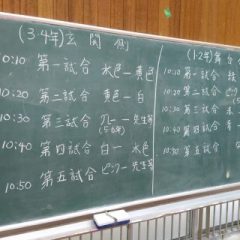 (3・4年)玄関側
10:10 第一試合 水色ー黄色
10:20 第二試合 黄色ー白
10:30 第三試合 ブルーー先生等
(5・6年)
10:40 第四試合 白ー水色
10:50 第五試合 ピンクー先生等
(1・2年)舞台
10:10 第一試合
10:20 第二試合 ピ
10:30 第三試合 赤
10:40 第四試合 青
10:50 第五試合 ピンク